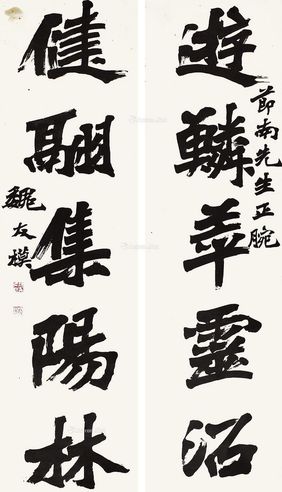 遊鱗萃靈沼
節南先生正腕
健翮集陽林
魏友模